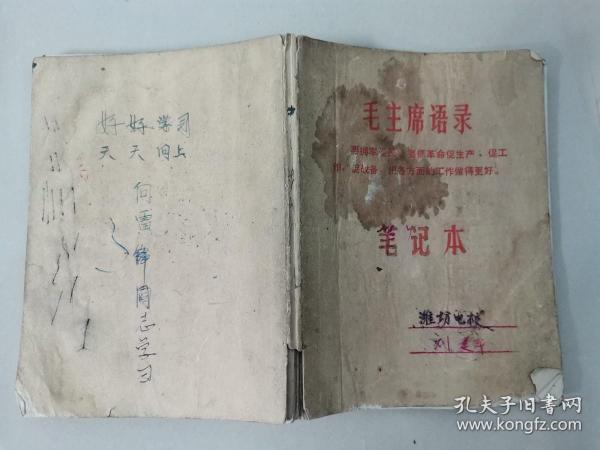 好好学习
天天向上
向雷锋同志学习
毛主席语录
革命促生产、促工
作、促战备,把各方面的工作做得更好。
笔记本
潍坊电校
刘
孔夫子旧书网
www.kongfz.com